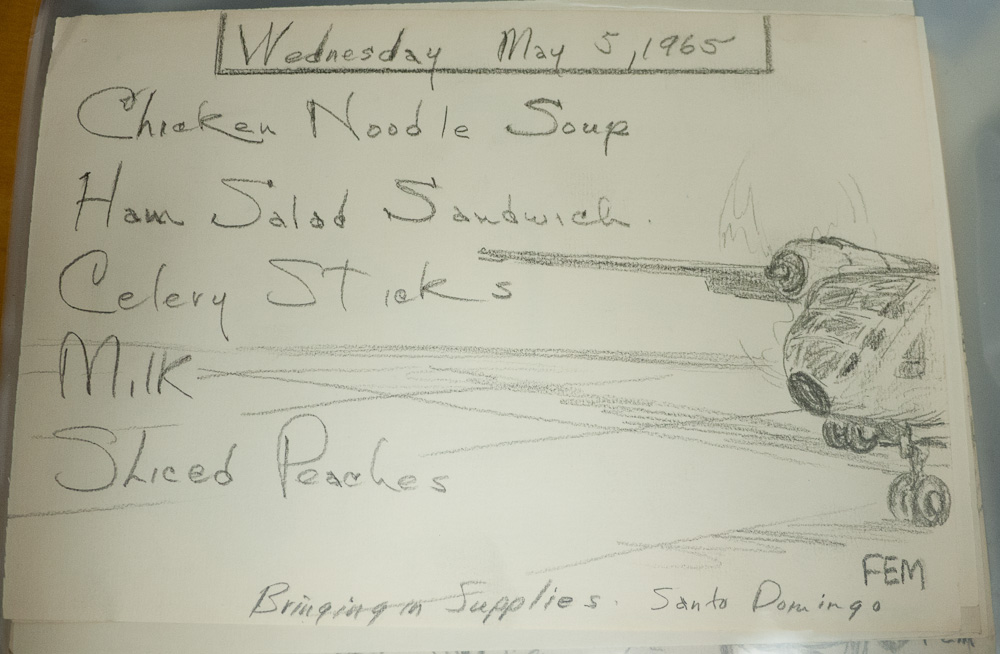 Wednesday May 5, 1965
Chicken Noodle Soup
Ham Salad Sandwich.
Celery Sticks
Milk
Sliced Peaches
FEM
Bringing in Supplies. Santo Domingo